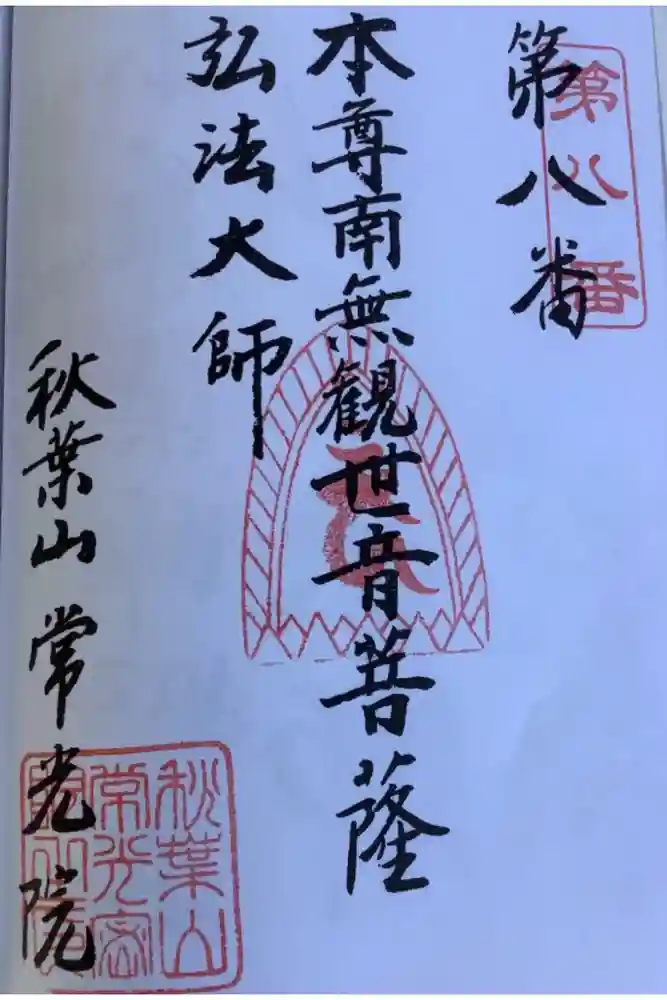 第八番
第八番
本尊南無観世音菩薩
弘法大師
秋葉山 常光院
秋葉山
常光密